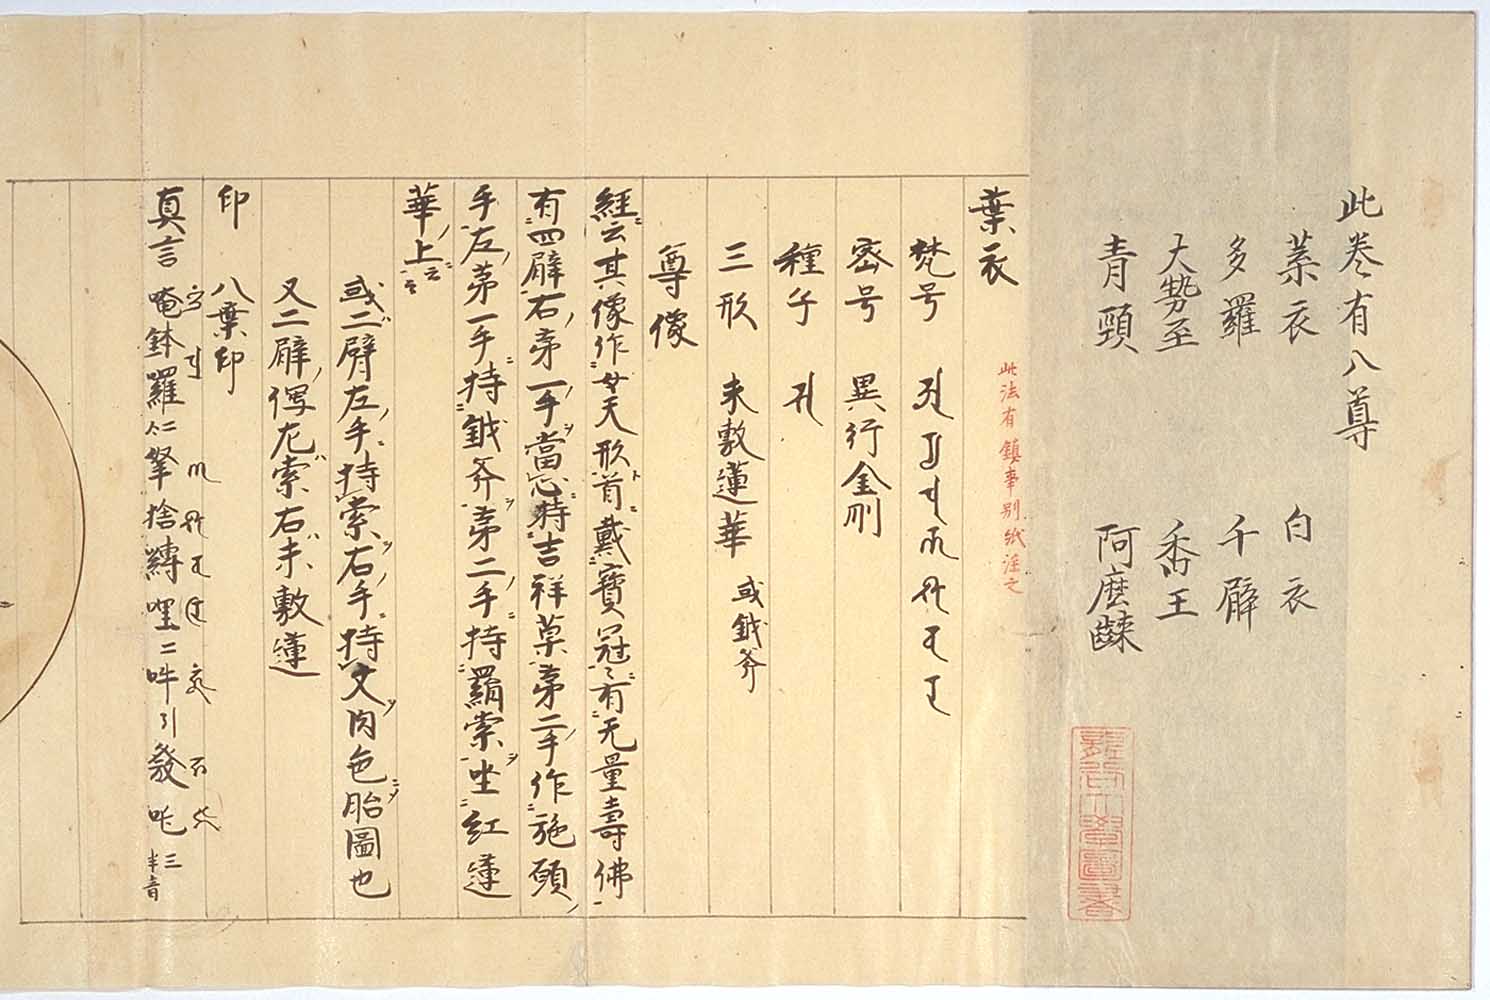 此巻有八尊
葉衣 白衣
多羅 千臂
大勢至 香王
青頸 阿麽𪘨
葉衣
此法有鎮事別紙注之
梵号
密号 異行金剛
種子
三形 未敷蓮華 或鉞斧
尊像
経云其像作女天形首戴寶冠〻有无量壽佛
有四臂右第一手當心持吉祥菓第二手作施願
手左第一手持鉞斧第二手持羂索坐紅蓮
華上云云
或二臂左手持索右手持又肉色胎圖也
又二臂傳左索右未敷蓮
印 八葉印
真言 唵鉢羅 二拏捨縛哩二吽引發吒 三半音